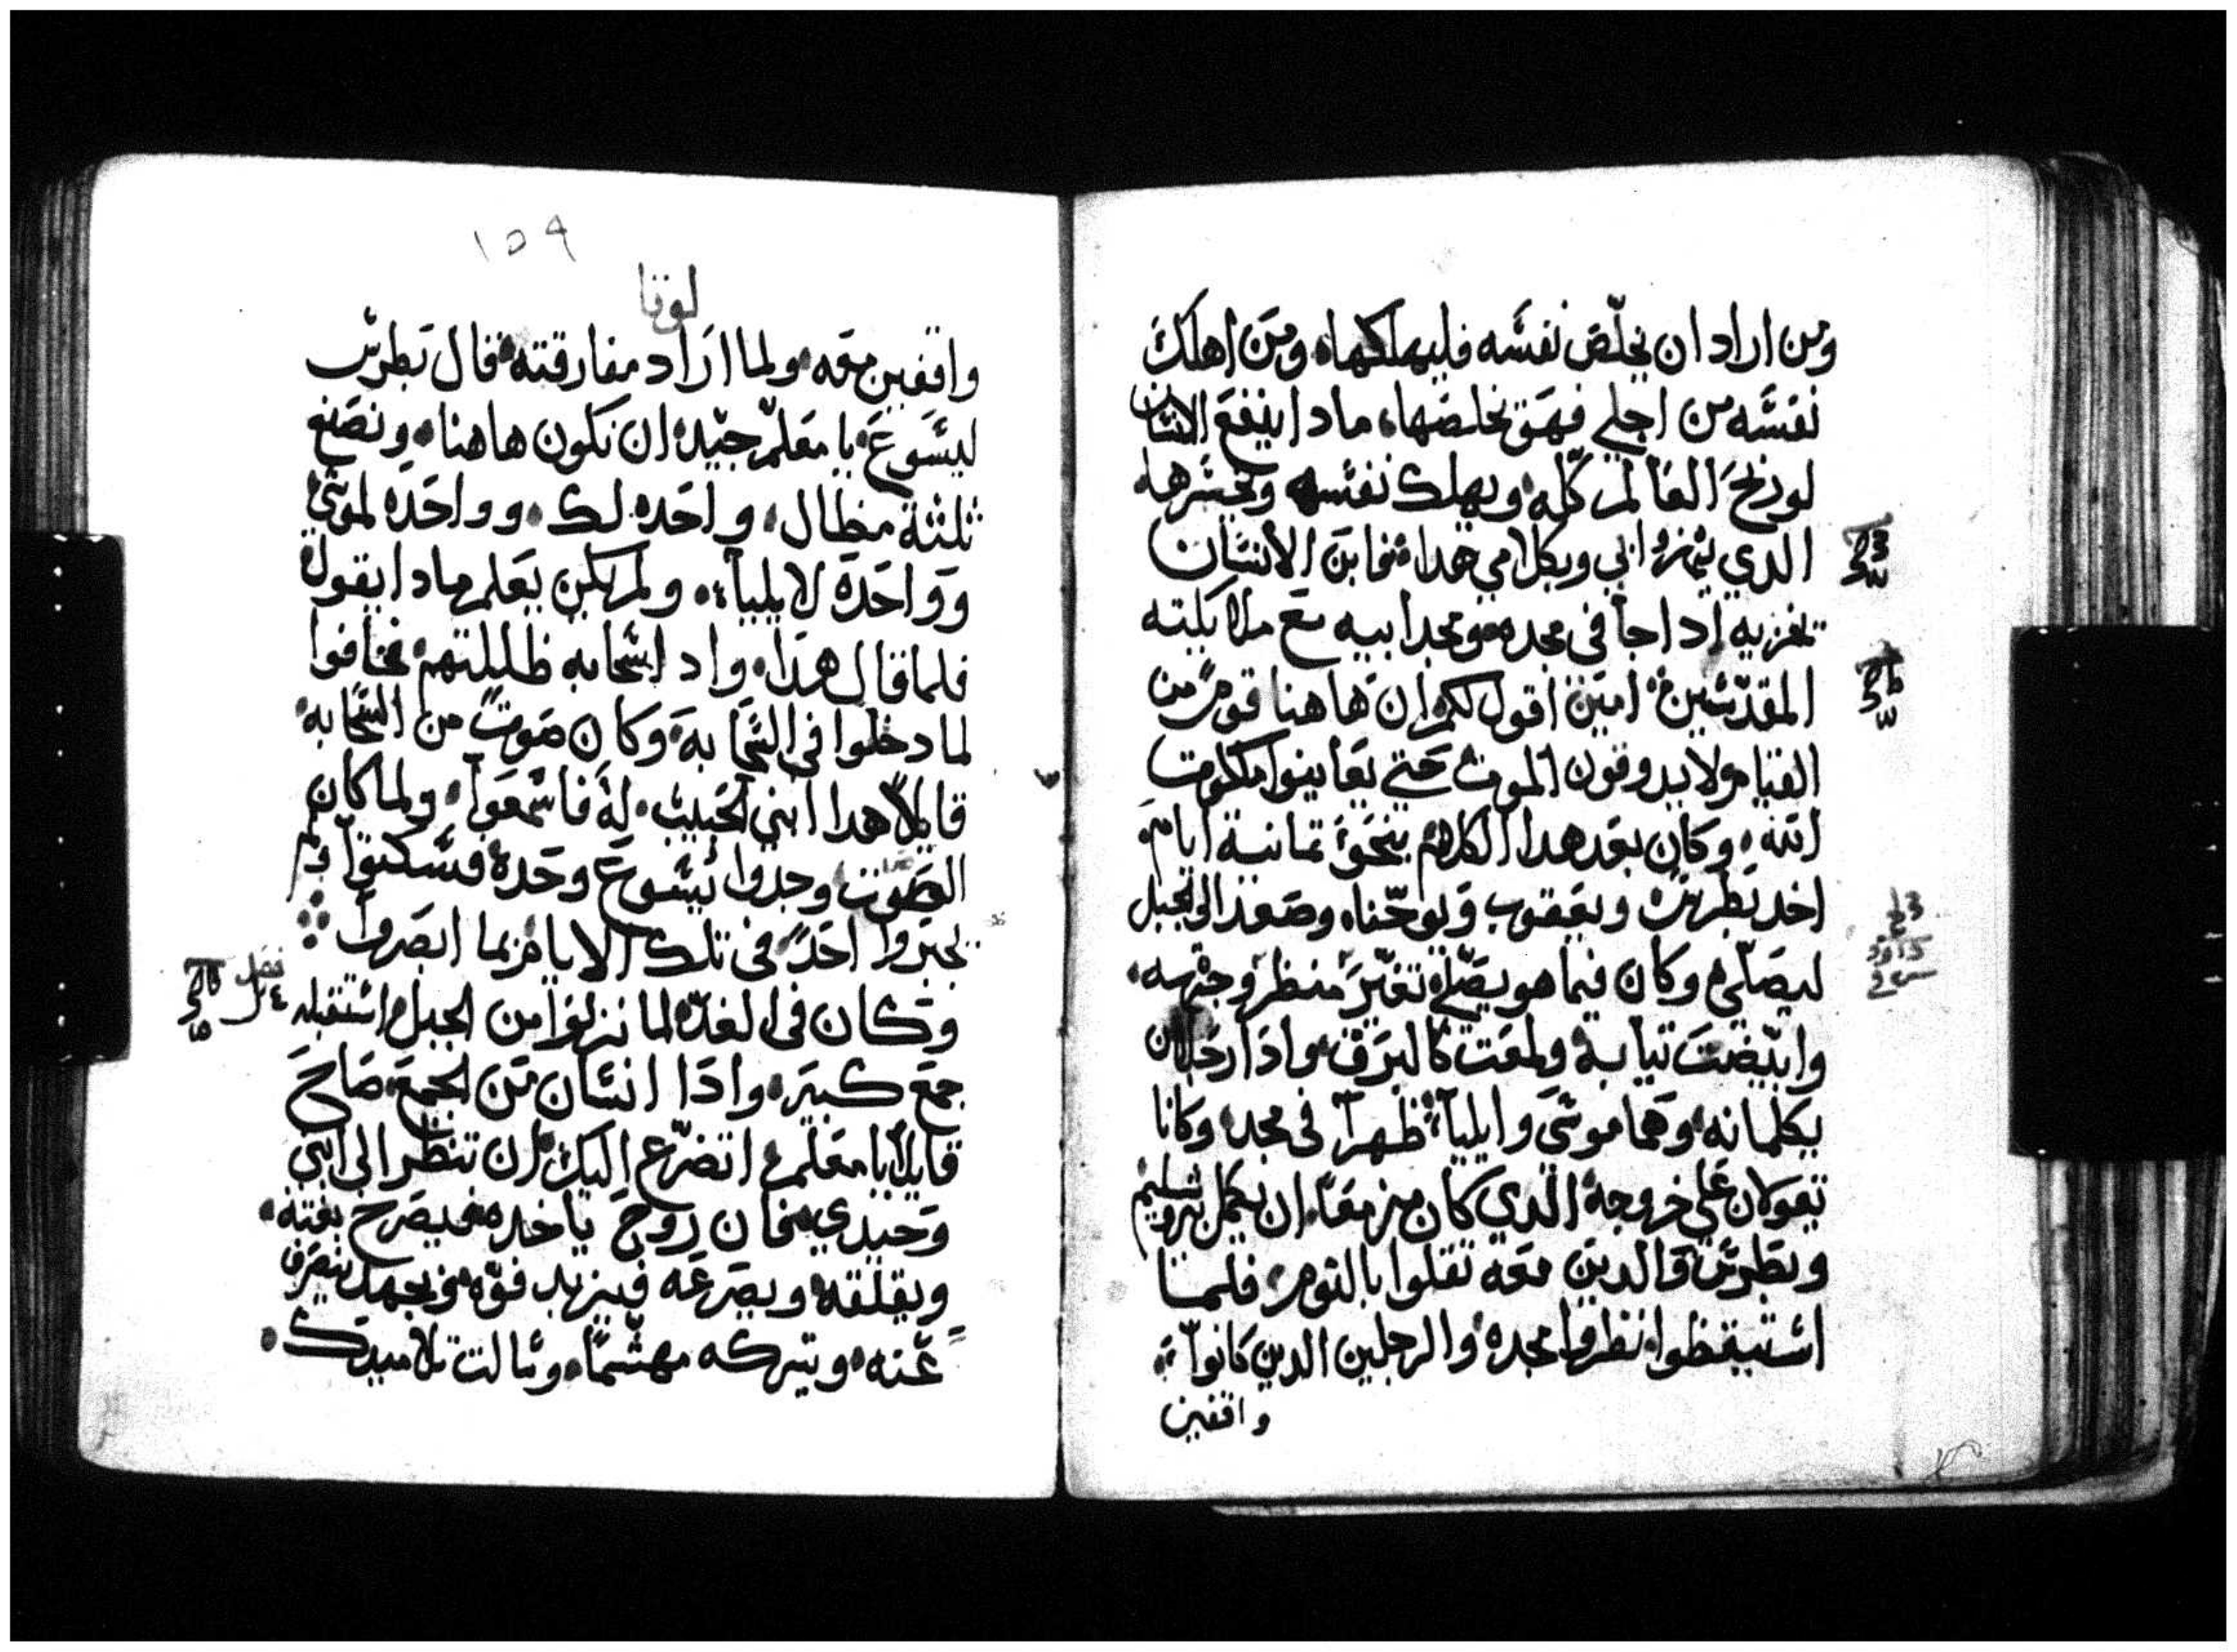 ومن اراد ان يخلّص نفسه فليهلكها ومن اهلك
نفسه من اجلي فهو يخلصها مادا ينفع الانسان
لو ربح العالم كلّه ويهلك نفسه ويخسرها
الدي يتهزوا بي وبكلامي هدا فابن الانسان
يخزيه إدا جا في مجده ومجد ابيه مع ملايكته
المقدّسين امين اقول لكم ان هاهنا قوم من
القيام ولا يدوقون الموت حتي يعاينوا ملكوت
الله وكان بعد هدا الكلام بنحو تمانية ايام
اخد بطرس ويعقوب ويوحّنا وصعد الى الجبل
ليصلّي وكان فيما هو يصلي تغيّر منظر وجهه
وابيّضت تيابه ولمعت كالبرق وادا رجلان
يكلمانه وهما موسى وايليا ظهرا في مجد وكانا
يقولان على خروجه الدي كان مزمعا ان يكمل بيروشليم
وبطرس والدين معه تقلوا بالنوم فلما
استيقظوا نظروا مجده والرجلين الدين كانوا
واقفين
١٥٩
لوقا
واقفين معه ولما اراد مفارقته قال بطرس
ليسوع يا معلّم جيّد ان نكون هاهنا ونصنع
ثلثة مظال واحده لك وواحده لموسي
وواحدة لايلياء ولم يكن يعلم مادا يقول
فلما قال هدا واد اسحابه ظللتهم فخافوا
لما دخلوا في السحابة وكان صوت من السحابه
قايلاً هدا ابني الحبيب له فاسمعوا ولما كان
الصوت وجدوا يسوع وحده فسكتوا ولم
يخبروا احد في تلك الايام بما ابصروا
وكان في الغدّ لما نزلوا من الجبل استقبله
جمع كبير وادا انسان من الجمع صاح
قايلا يا معلم اتضرّع اليك ان تنظر الى ابني
وحيدي فان روح ياخده فيصرخ بغتة
ويقلقه ويصرعه فيزبد فوّه وبجهد ينصرف
عنه ويتركه مهشّماً وسالت تلاميدك
فصل